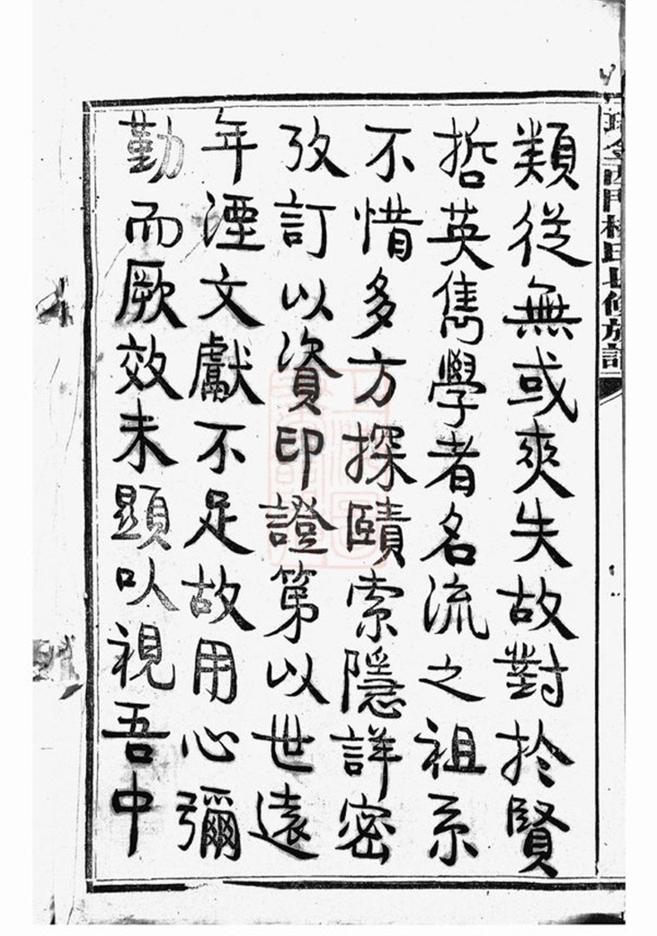 類從無或爽失故對扵賢
哲英雋學者名流之祖系
不惜多方探賾索隱詳密
攷訂以資印證第以世遠
年湮文獻不足故用心彌
勤而厥效未顯以視吾中